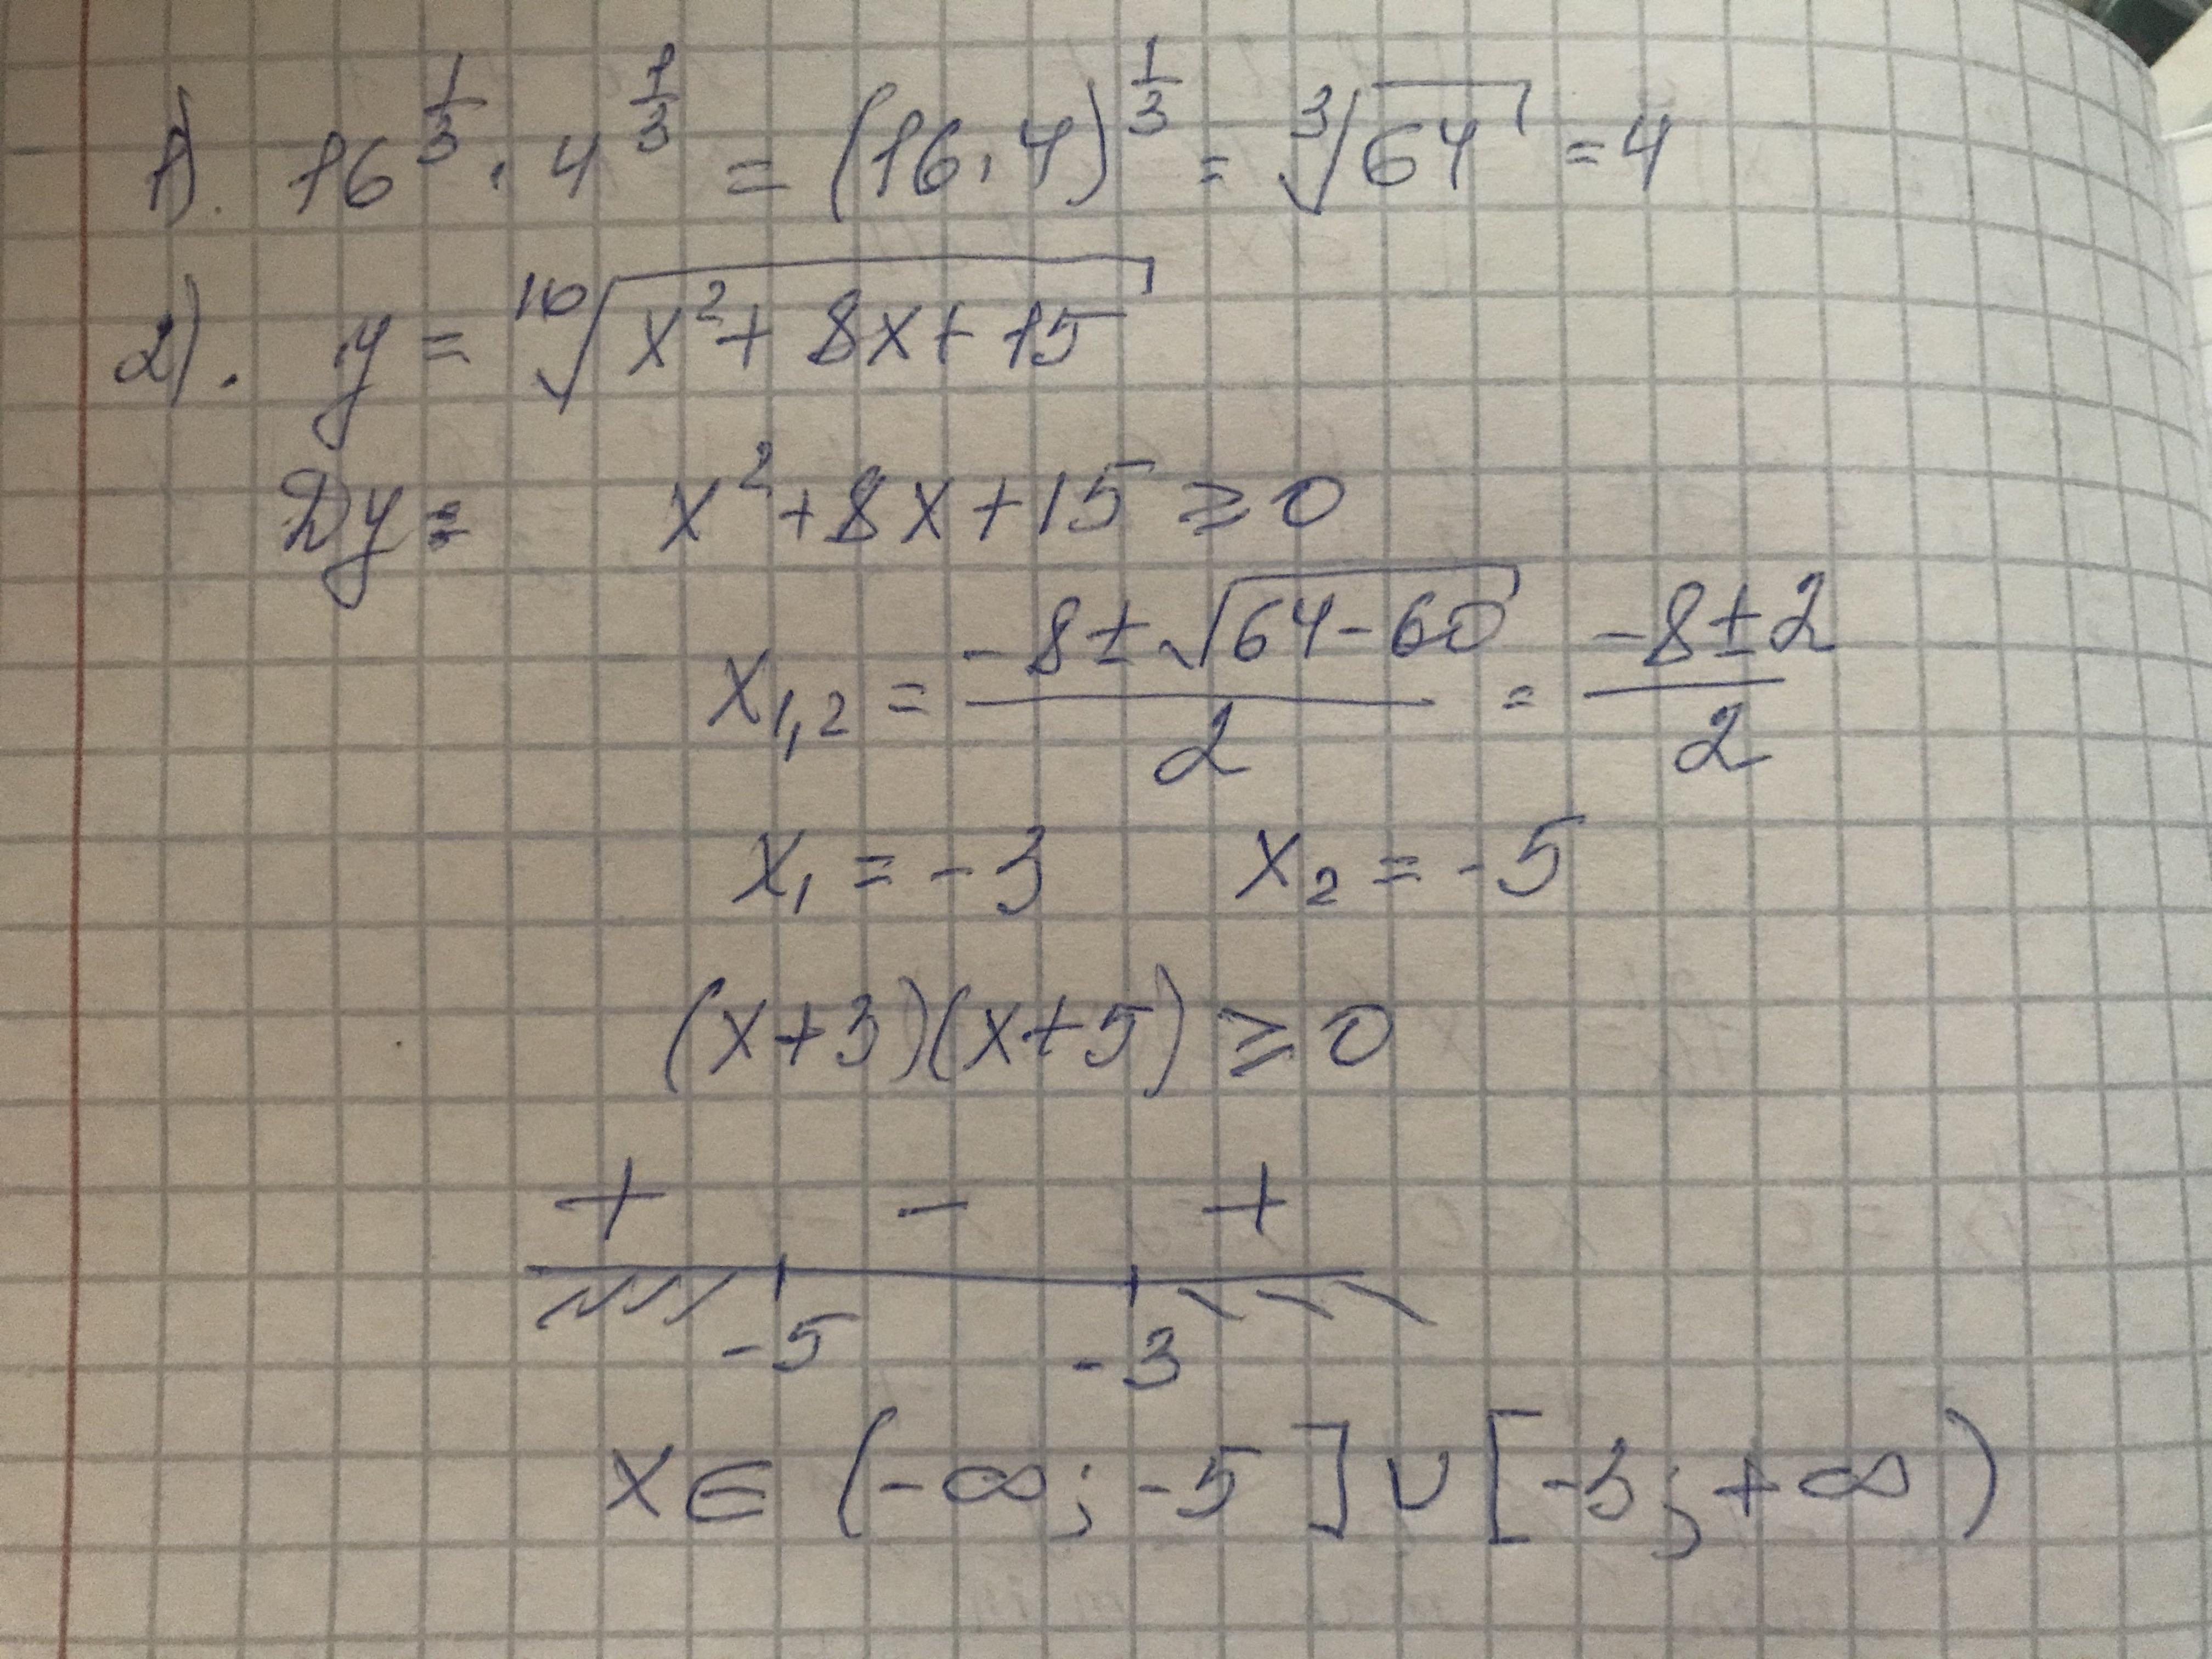 1). 16^{1/3} · 4^{1/3} = (16 · 4)^{1/3} = ∛64 = 4
2). y = ¹⁰√(x² + 8x + 15)
Dy = x² + 8x + 15 ≥ 0
x₁,₂ = (-8 ± √(64 - 60))/2 = (-8 ± 2)/2
x₁ = -3 x₂ = -5
(x+3)(x+5) ≥ 0
+ - +
-5 -3
x ∈ (-∞; -5] ∪ [-3; +∞)